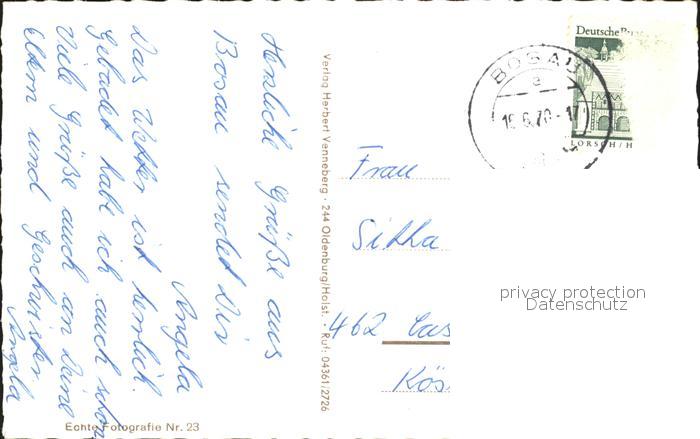 Herzliche Grüße aus
Bosau sendet Dir
Angela
Das Wetter ist herrlich.
Gebadet habe ich auch schon
Viele Grüße auch an Deine
Eltern und Geschwister.
Angela
Echte Fotografie Nr. 23
Verlag Herbert Venneberg · 244 Oldenburg/Holst. · Ruf: 04361/2726
Deutsche Bu
LORSCH/H
BOSAU
a
16.6.70-17
Frau
Silka
462 Cas
Kös
privacy protection
Datenschutz